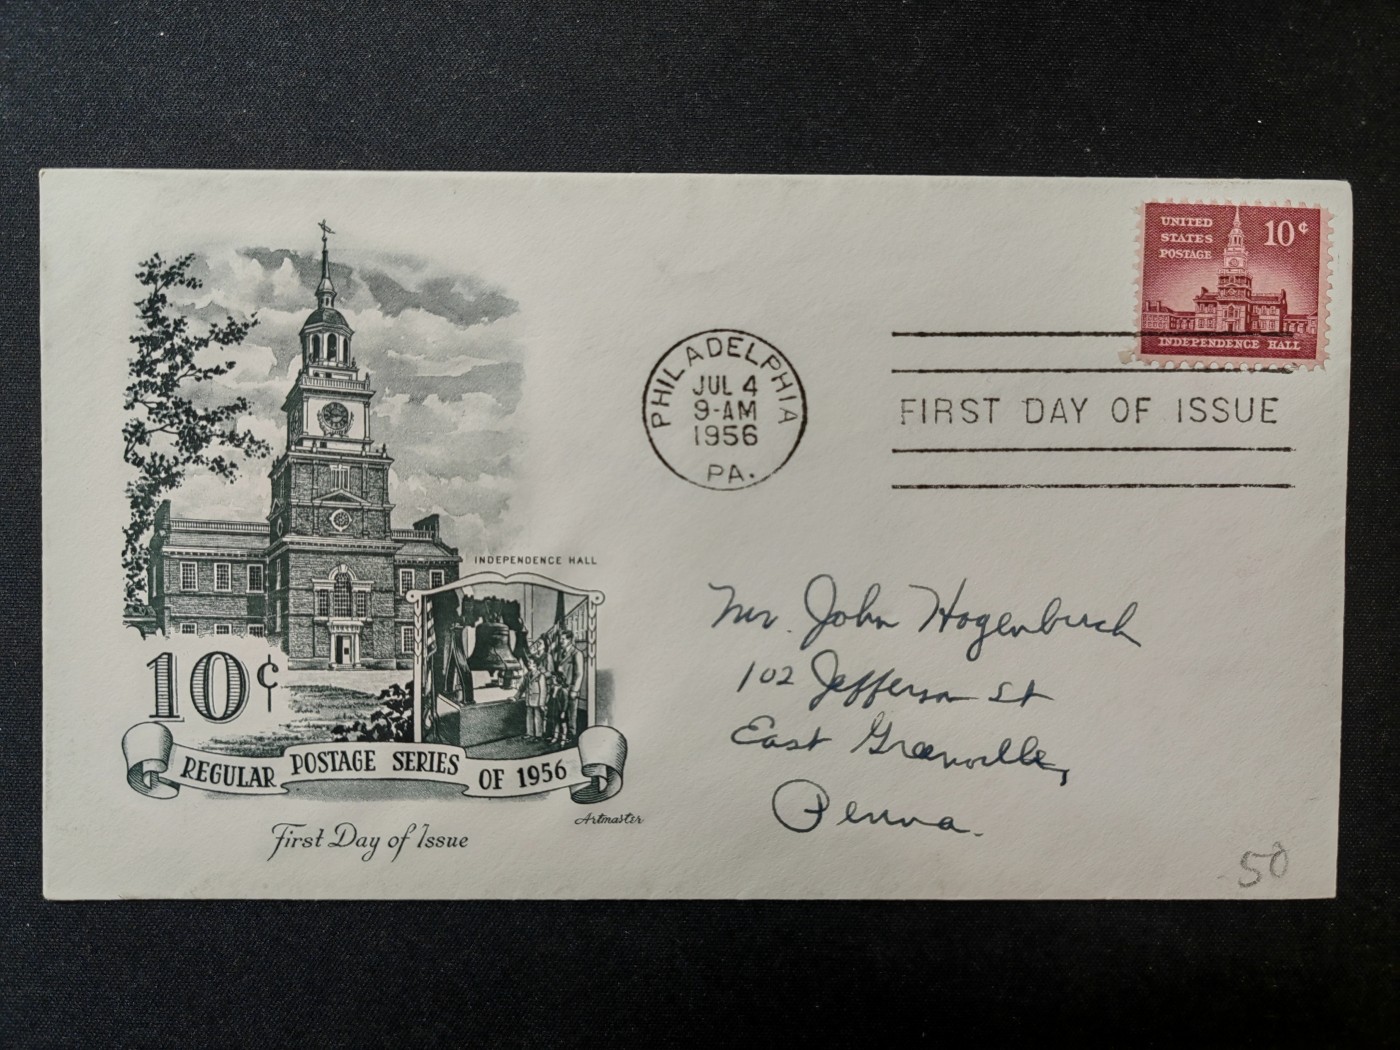 UNITED
STATES
POSTAGE
10¢
INDEPENDENCE HALL
PHILADELPHIA
JUL 4
9-AM
1956
PA.
FIRST DAY OF ISSUE
INDEPENDENCE HALL
10¢
REGULAR POSTAGE SERIES OF 1956
Artmaster
First Day of Issue
Mr. John Hogenbuch
102 Jefferson St
East Greenville,
Penna.
50